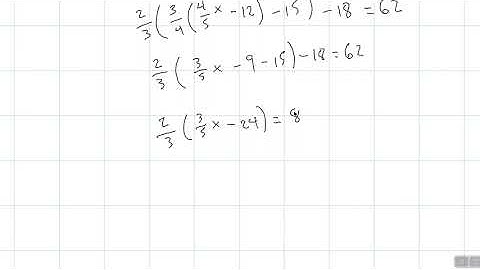 2/3 ( 3/4 ( 4/5 x - 12 ) - 15 ) - 18 = 62
2/3 ( 3/5 x - 9 - 15 ) - 18 = 62
2/3 ( 3/5 x - 24 ) = 8